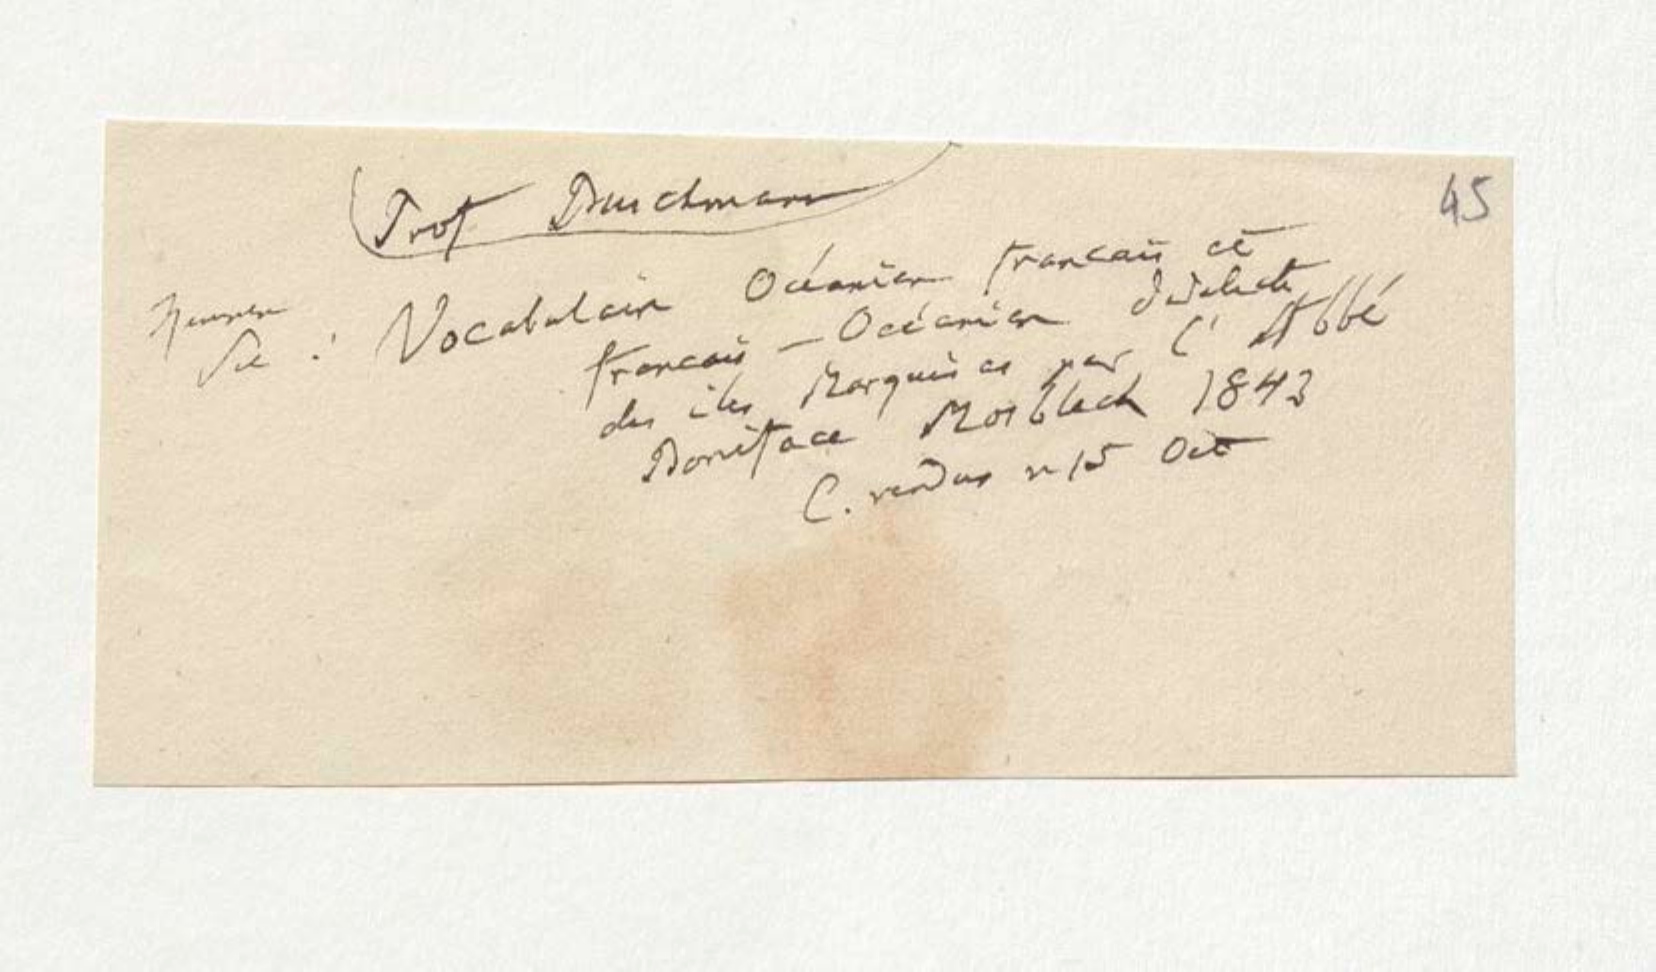 45
Prof Buschmann
Kennen
Sie : Vocabulair Océanien français et
français – Océanien dialecte
des îles Marquises par l'Abbé
Boniface Mosblech 1843
C. rendus n 15 Oct